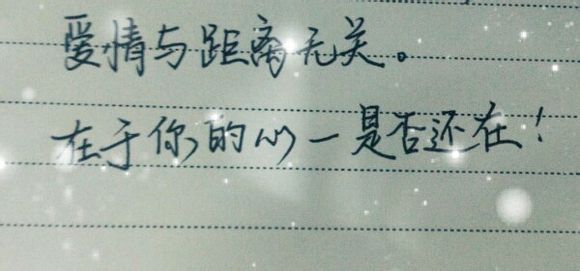 爱情与距离无关。
在于你的心一是否还在！